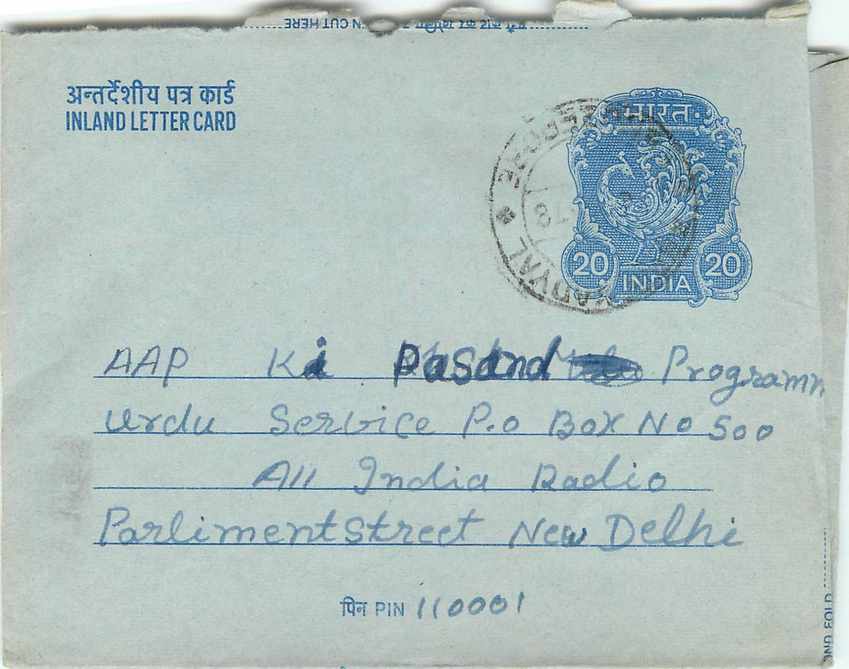 TO OPEN CUT HERE
अन्तर्देशीय पत्र कार्ड
INLAND LETTER CARD
भारत
78
20 20
INDIA
AAP Ki Pasand Programm
Urdu Service P.o Box No 500
All India Radio
Parliment Street New Delhi
पिन PIN 110001
SECOND FOLD